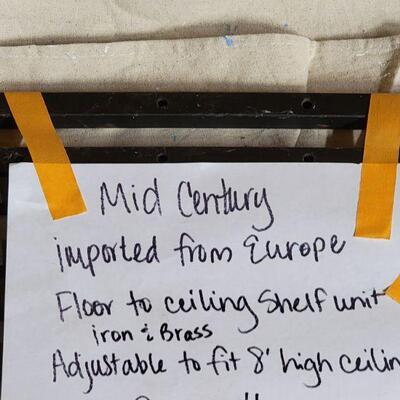 Mid Century
imported from Europe
Floor to ceiling Shelf unit
iron & Brass
Adjustable to fit 8' high ceilin